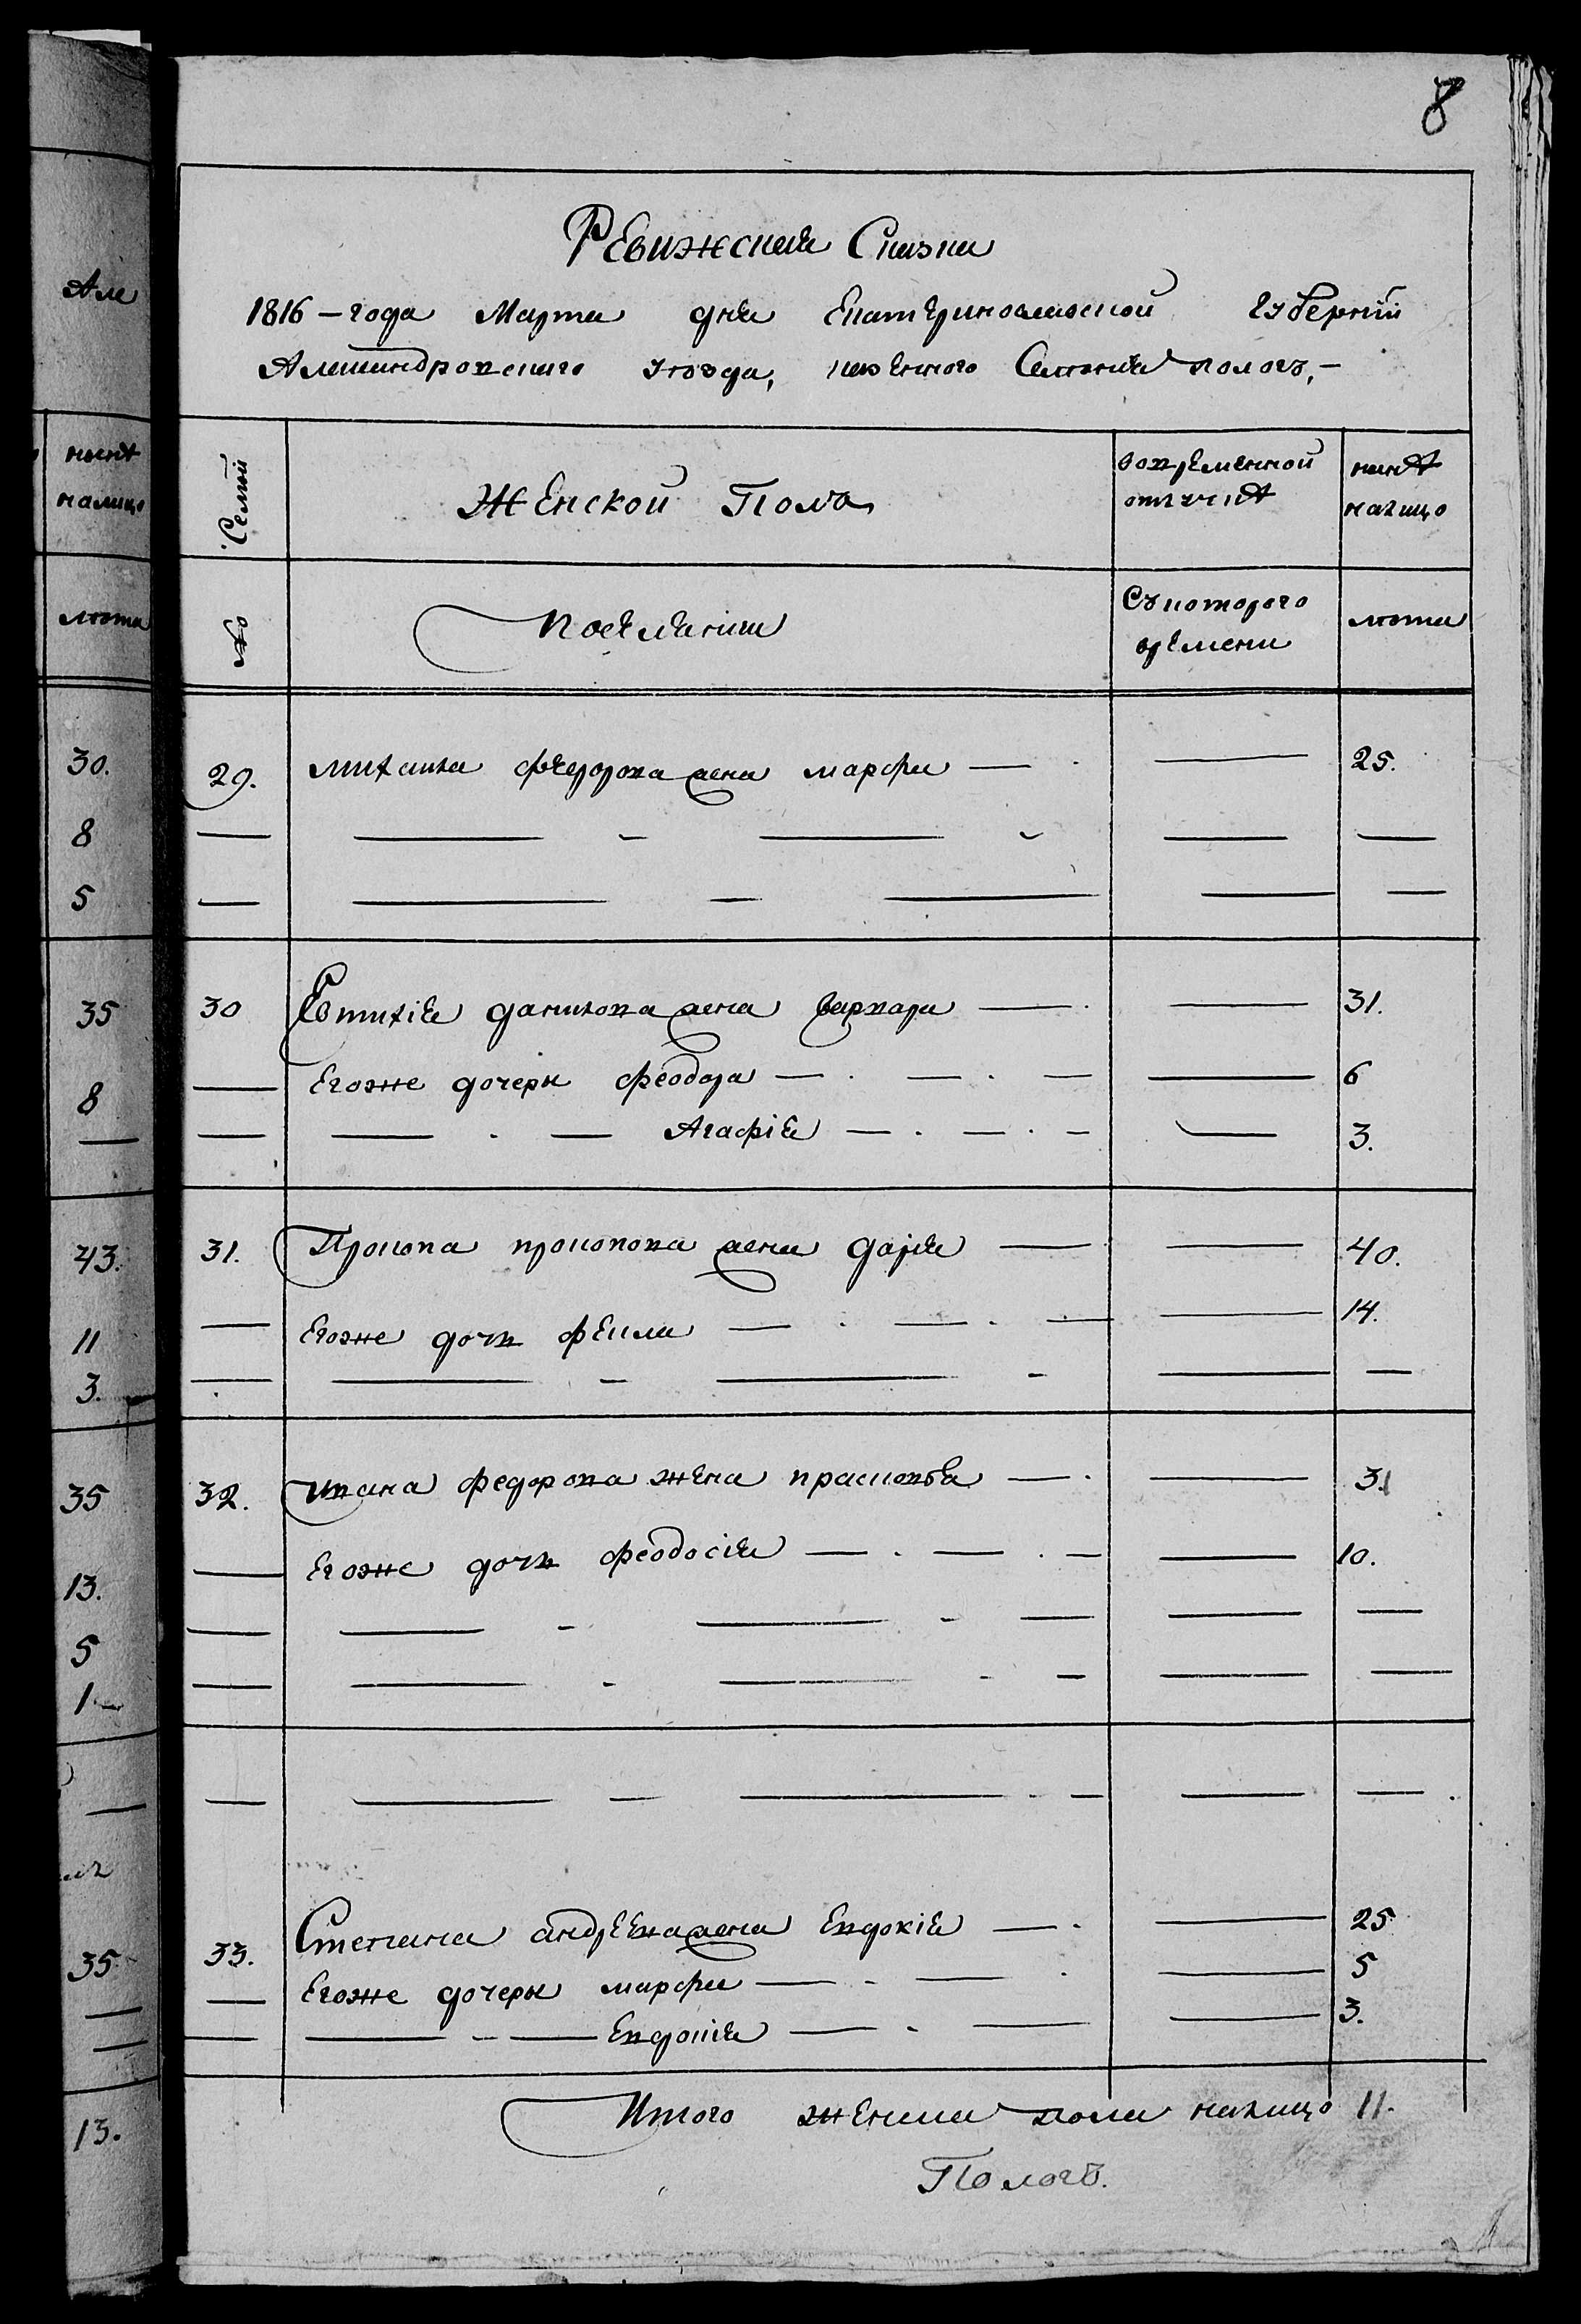 8
Ревижская Сказка
1816 – года Марта дня Екатеринославской губернии
Александровского уезда, казенного Селения пологъ, –
Семьи
Женской Полъ
вовременной отлучкѣ
нынѣ налицо
№
поселянки
Съ котораго времени
лѣта
29. михаила федорова жена марфа — — 25.
30 Евтихія данилова жена варвара — — 31.
Егоже дочери феодора — — 6
— Агафія — — 3.
31. Прокопа прокопова жена дарія — — 40.
Егоже дочь фекла — — 14.
32. ивана федорова жена прасковья — — 31
Егоже дочь феодосія — — 10.
33. Степана андреева жена Евдокія — — 25
Егоже дочери марфа — — 5
— Евдокія — — 3.
Итого женска пола налицо 11.
Пологъ.
Але
нынѣ
налицо
лѣта
30.
8
5
35
8
43.
11
3.
35
13.
5
1
35
13.